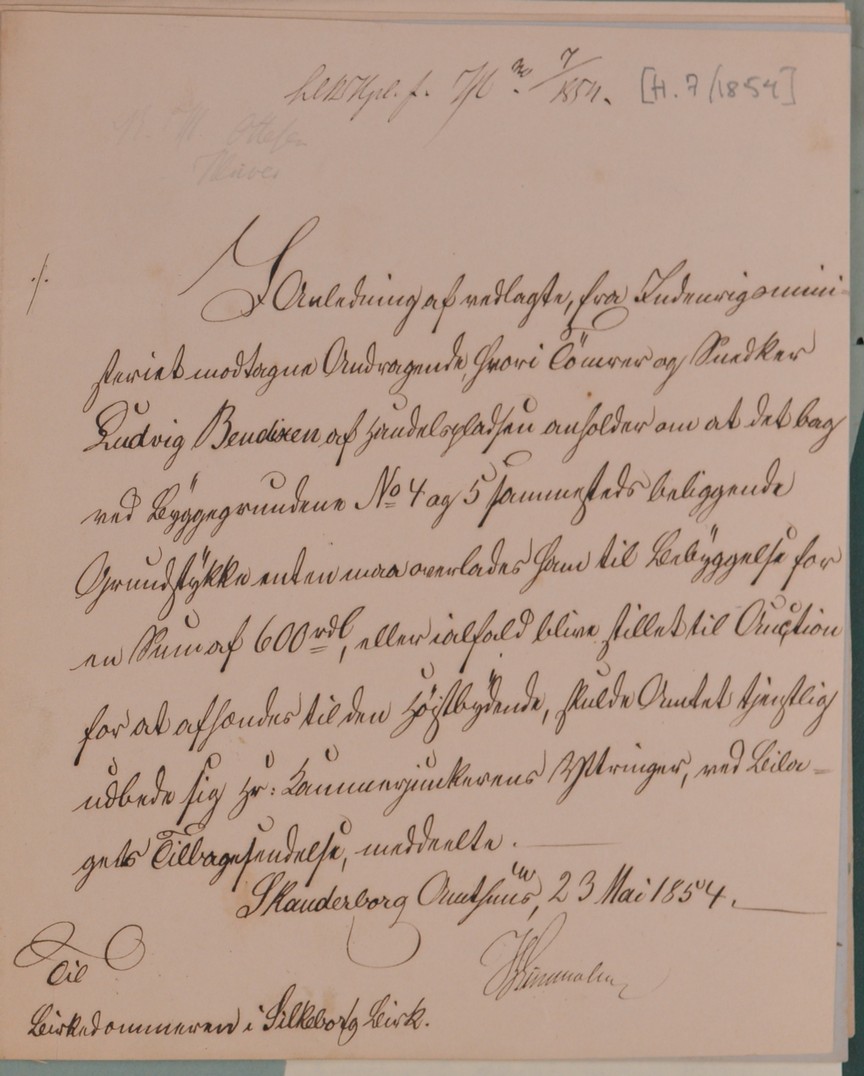 H. No 7/1854. [H. 7/1854]
Ottesen
./.
I Anledning af vedlagte, fra Indenrigsmini-
steriet modtagne Andragende, hvori Tömrer og Snedker
Ludvig Bendixen af Handelspladsen anholder om at det bag
ved Byggegrundene No 4 og 5 sammesteds beliggende
Grundstykke enten maa overlades ham til Bebyggelse for
en Sum af 600 rdl, eller ialfald blive stillet til Auction
for at afhændes til den Höistbydende, skulde Amtet tjenstlig
udbede sig Hr: Kammerjunkerens Yttringer, ved Bila-
gets Tilbagesendelse, meddeelte.
Skanderborg Amthuus, 23 Mai 1854.
Til
Birkedommeren i Silkeborg Birk.